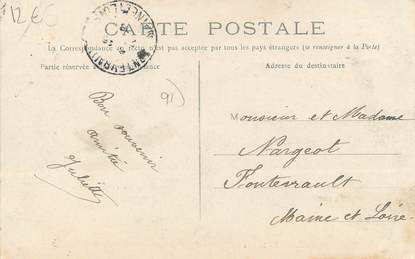 12€
CARTE POSTALE
La Correspondance au recto n'est pas acceptée par tous les pays étrangers (se renseigner à la Poste)
Partie réservée à la correspondance
Adresse du destinataire
91)
Bon souvenir
amitié
Juliette
Monsieur et Madame
Nargeot
Fontevrault
Maine et Loire